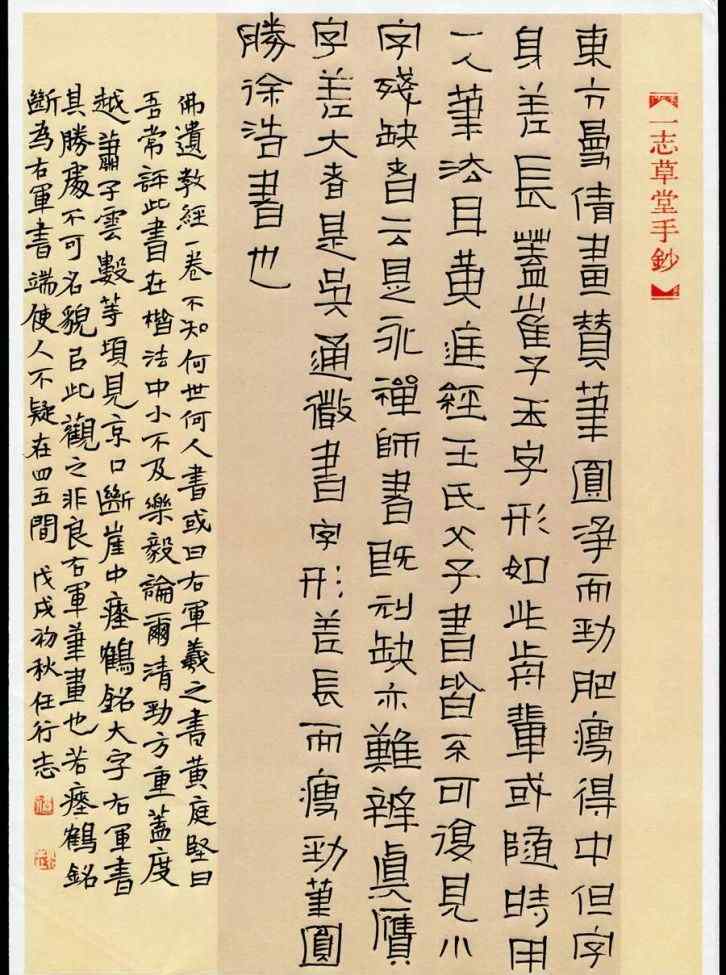 【一志草堂手鈔】
東方曼倩畫贊筆圓淨而勁肥瘦得中但字
身差長蓋崔子玉字形如此歬輩或隨時用
一人筆法且黃庭經王氏父子書皆不可復見小
字殘缺者云是永禪師書既刓缺亦難辨真贗
字差大者是吳通微書字形差長而瘦勁筆圓
勝徐浩書也
佛遺教經一卷不知何世何人書或曰右軍羲之書黃庭堅曰
吾常評此書在楷法中小不及樂毅論爾清勁方重蓋度
越蕭子雲數等頃見京口斷崖中瘞鶴銘大字右軍書
其勝處不可名貌㠯此觀之非良右軍筆畫也若瘞鶴銘
斷為右軍書端使人不疑在四五間 戊戌初秋任行志